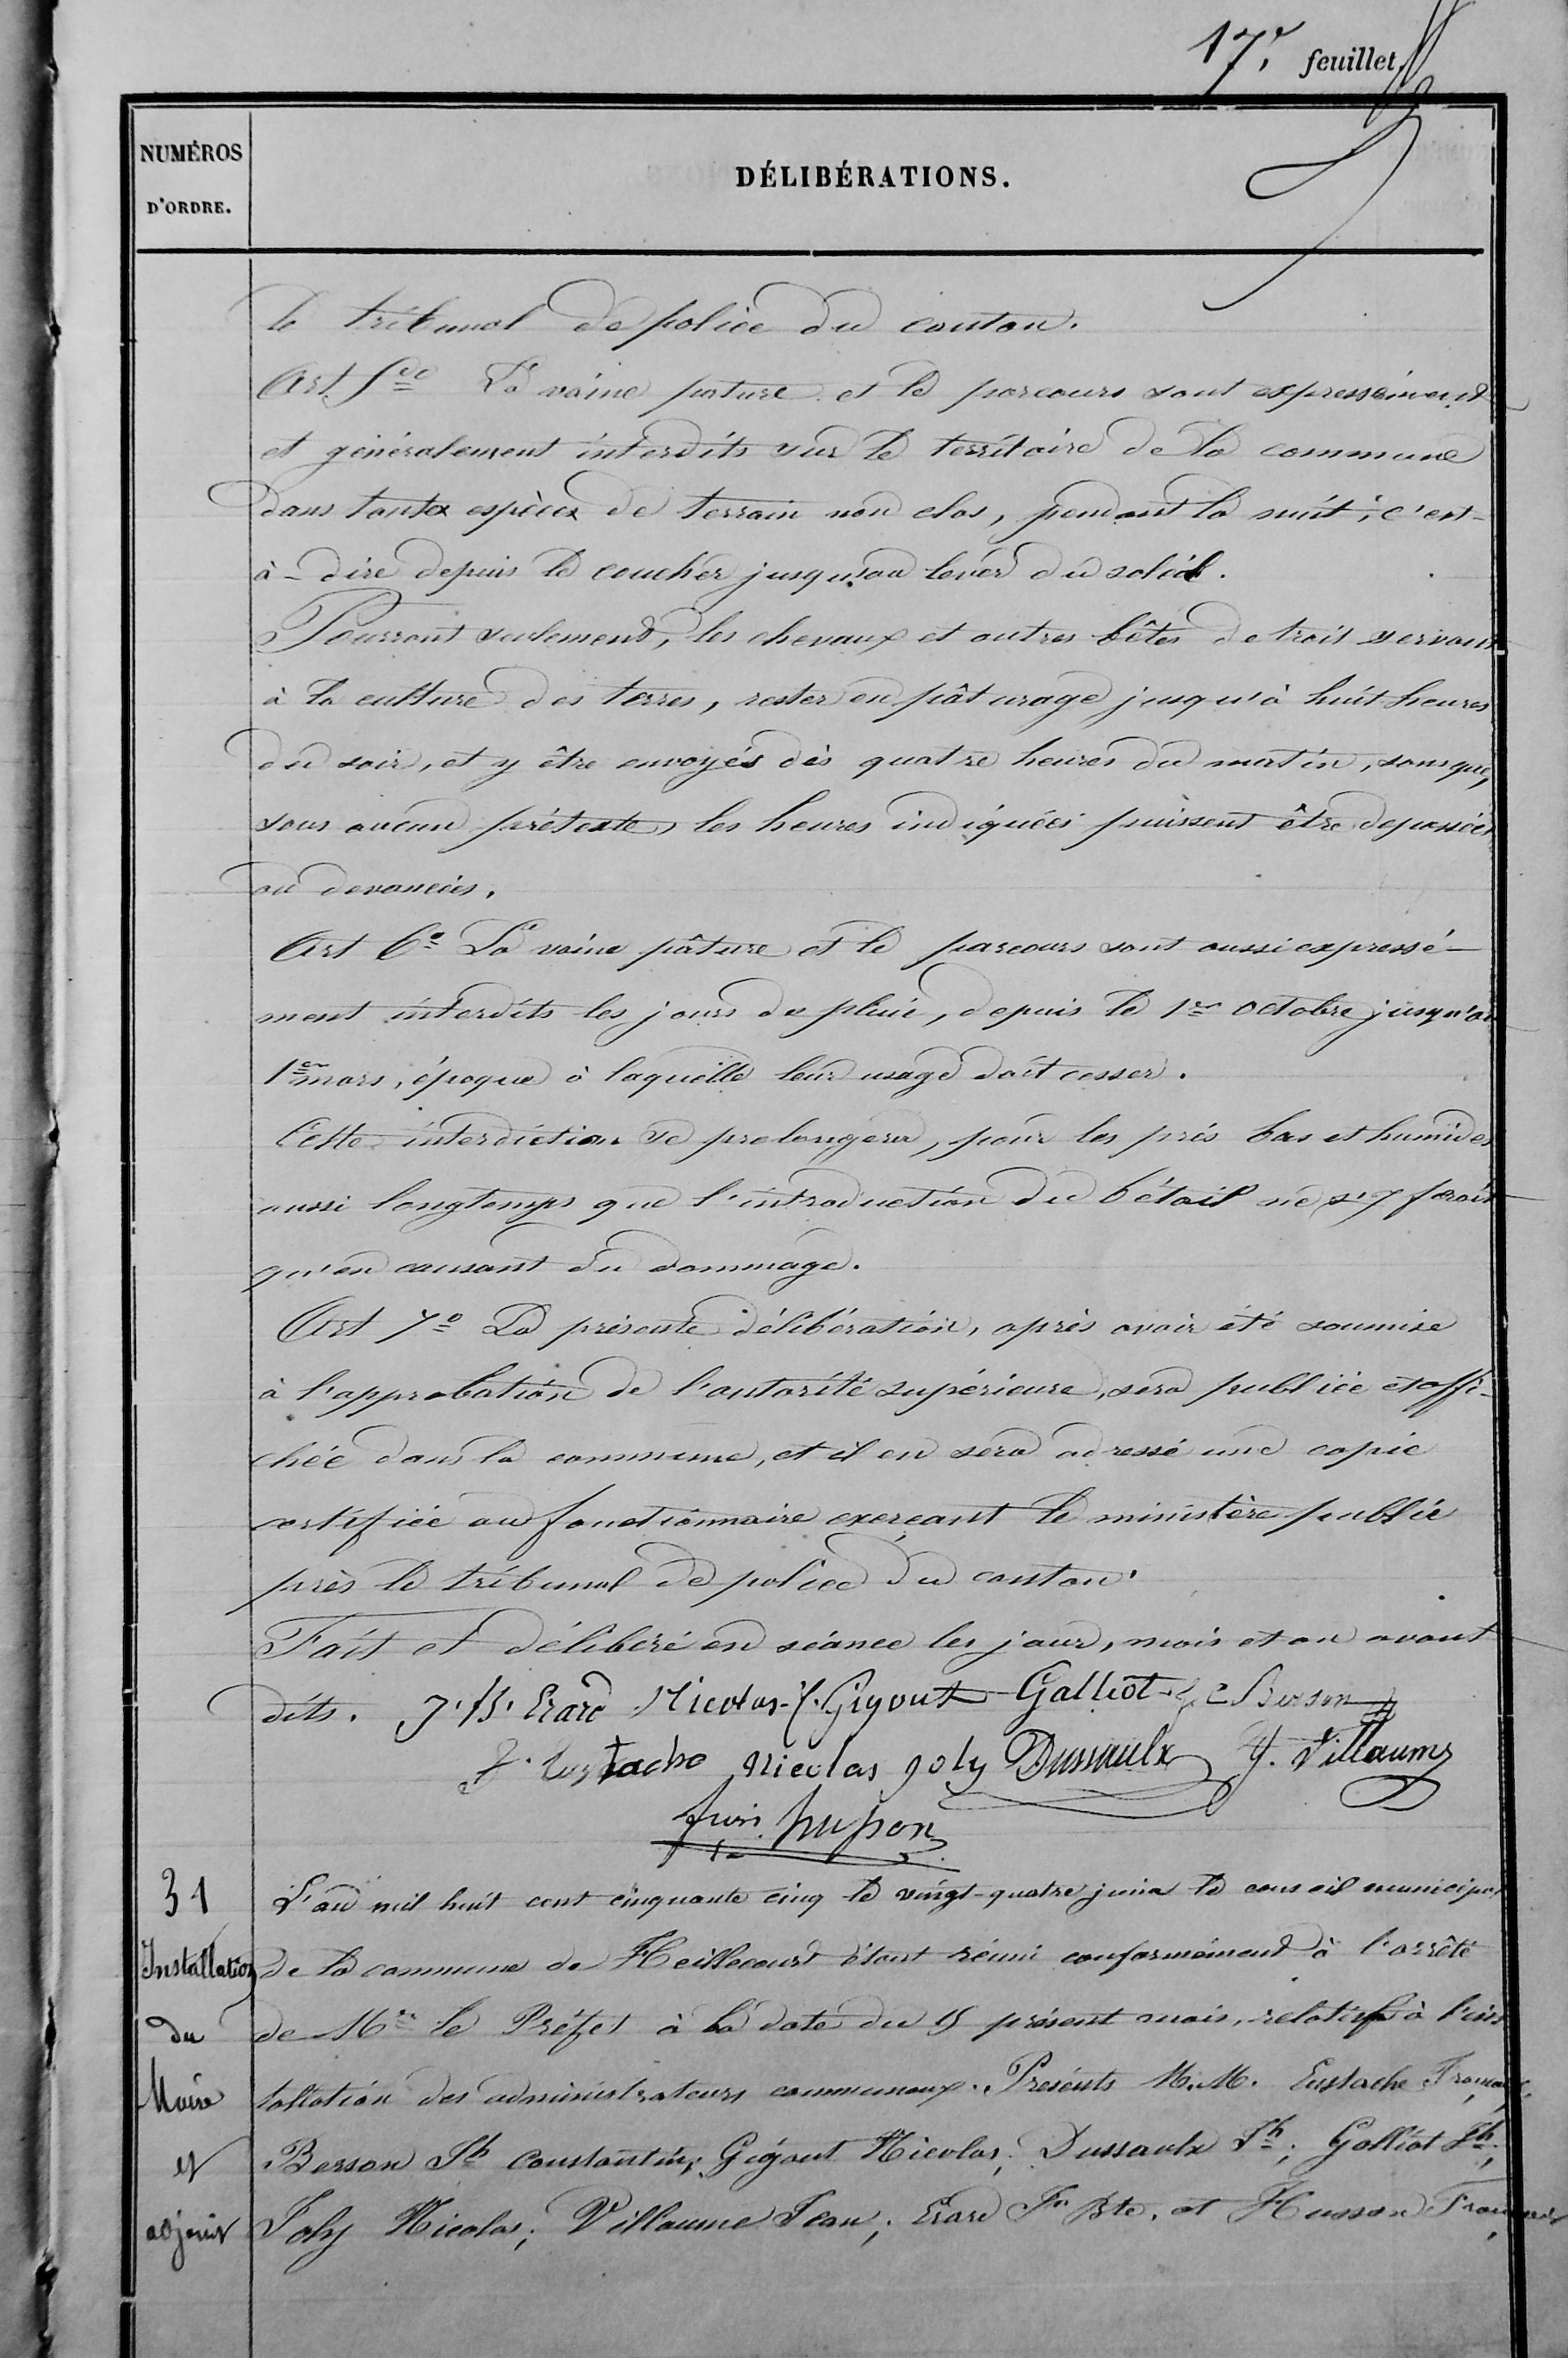 17e feuillet
NUMÉROS
D'ORDRE.
DÉLIBÉRATIONS.
le tribunal de police du canton.
Art. 5e La vaine pature et le parcours sont expressément
et généralement interdits sur le territoire de la commune
dans toutes espèces de terrain non clos, pendant la nuit; c'est-
à-dire depuis le coucher jusqu'au lever du soleil.
Pourront seulement, les chevaux et autres bêtes de trait servant
à la culture des terres, rester en pâturage jusqu'à huit heures
du soir, et y être envoyés dès quatre heures du matin, sans que,
sous aucun prétexte, les heures indiquées puissent être depassées
ou devancées.
Art 6e La vaine pâture et le parcours sont aussi expressé-
ment interdits les jours de pluie, depuis le 1er octobre jusqu'au
1er mars, époque à laquelle leur usage doit cesser.
Cette interdiction se prolongera, pour les prés bas et humides
aussi longtemps que l'introduction du bétail ne s'y ferait
qu'en causant du dommage.
Art 7e La présente délibération, après avoir été soumise
à l'approbation de l'autorité supérieure, sera publiée et affi-
chée dans la commune, et il en sera adressé une copie
certifiée au fonctionnaire exerçant le ministère public
près le tribunal de police du canton.
Fait et délibéré en séance les jour, mois et an avant
dits. J. B. Erard Nicolas Gigout Galliot J C Berson
F. Eustache Nicolas Joly Dussaulx J. Villaume
fcois husson
31
Installation
du
Maire
et
adjoint
L'an mil huit cent cinquante cinq le vingt-quatre juin le conseil municipal
de la commune de Heillecourt étant réuni conformément à l'arrêté
de Mr le Préfet à la date du 9 présent mois, relatif à l'ins
tallation des administrateurs communaux. Présents M.M. Eustache François,
Berson Jh Constantin; Gigout Nicolas; Dussaulx Jh; Galliot Jh;
Joly Nicolas; Villaume Jean; Erard Jn Bte. et Husson François